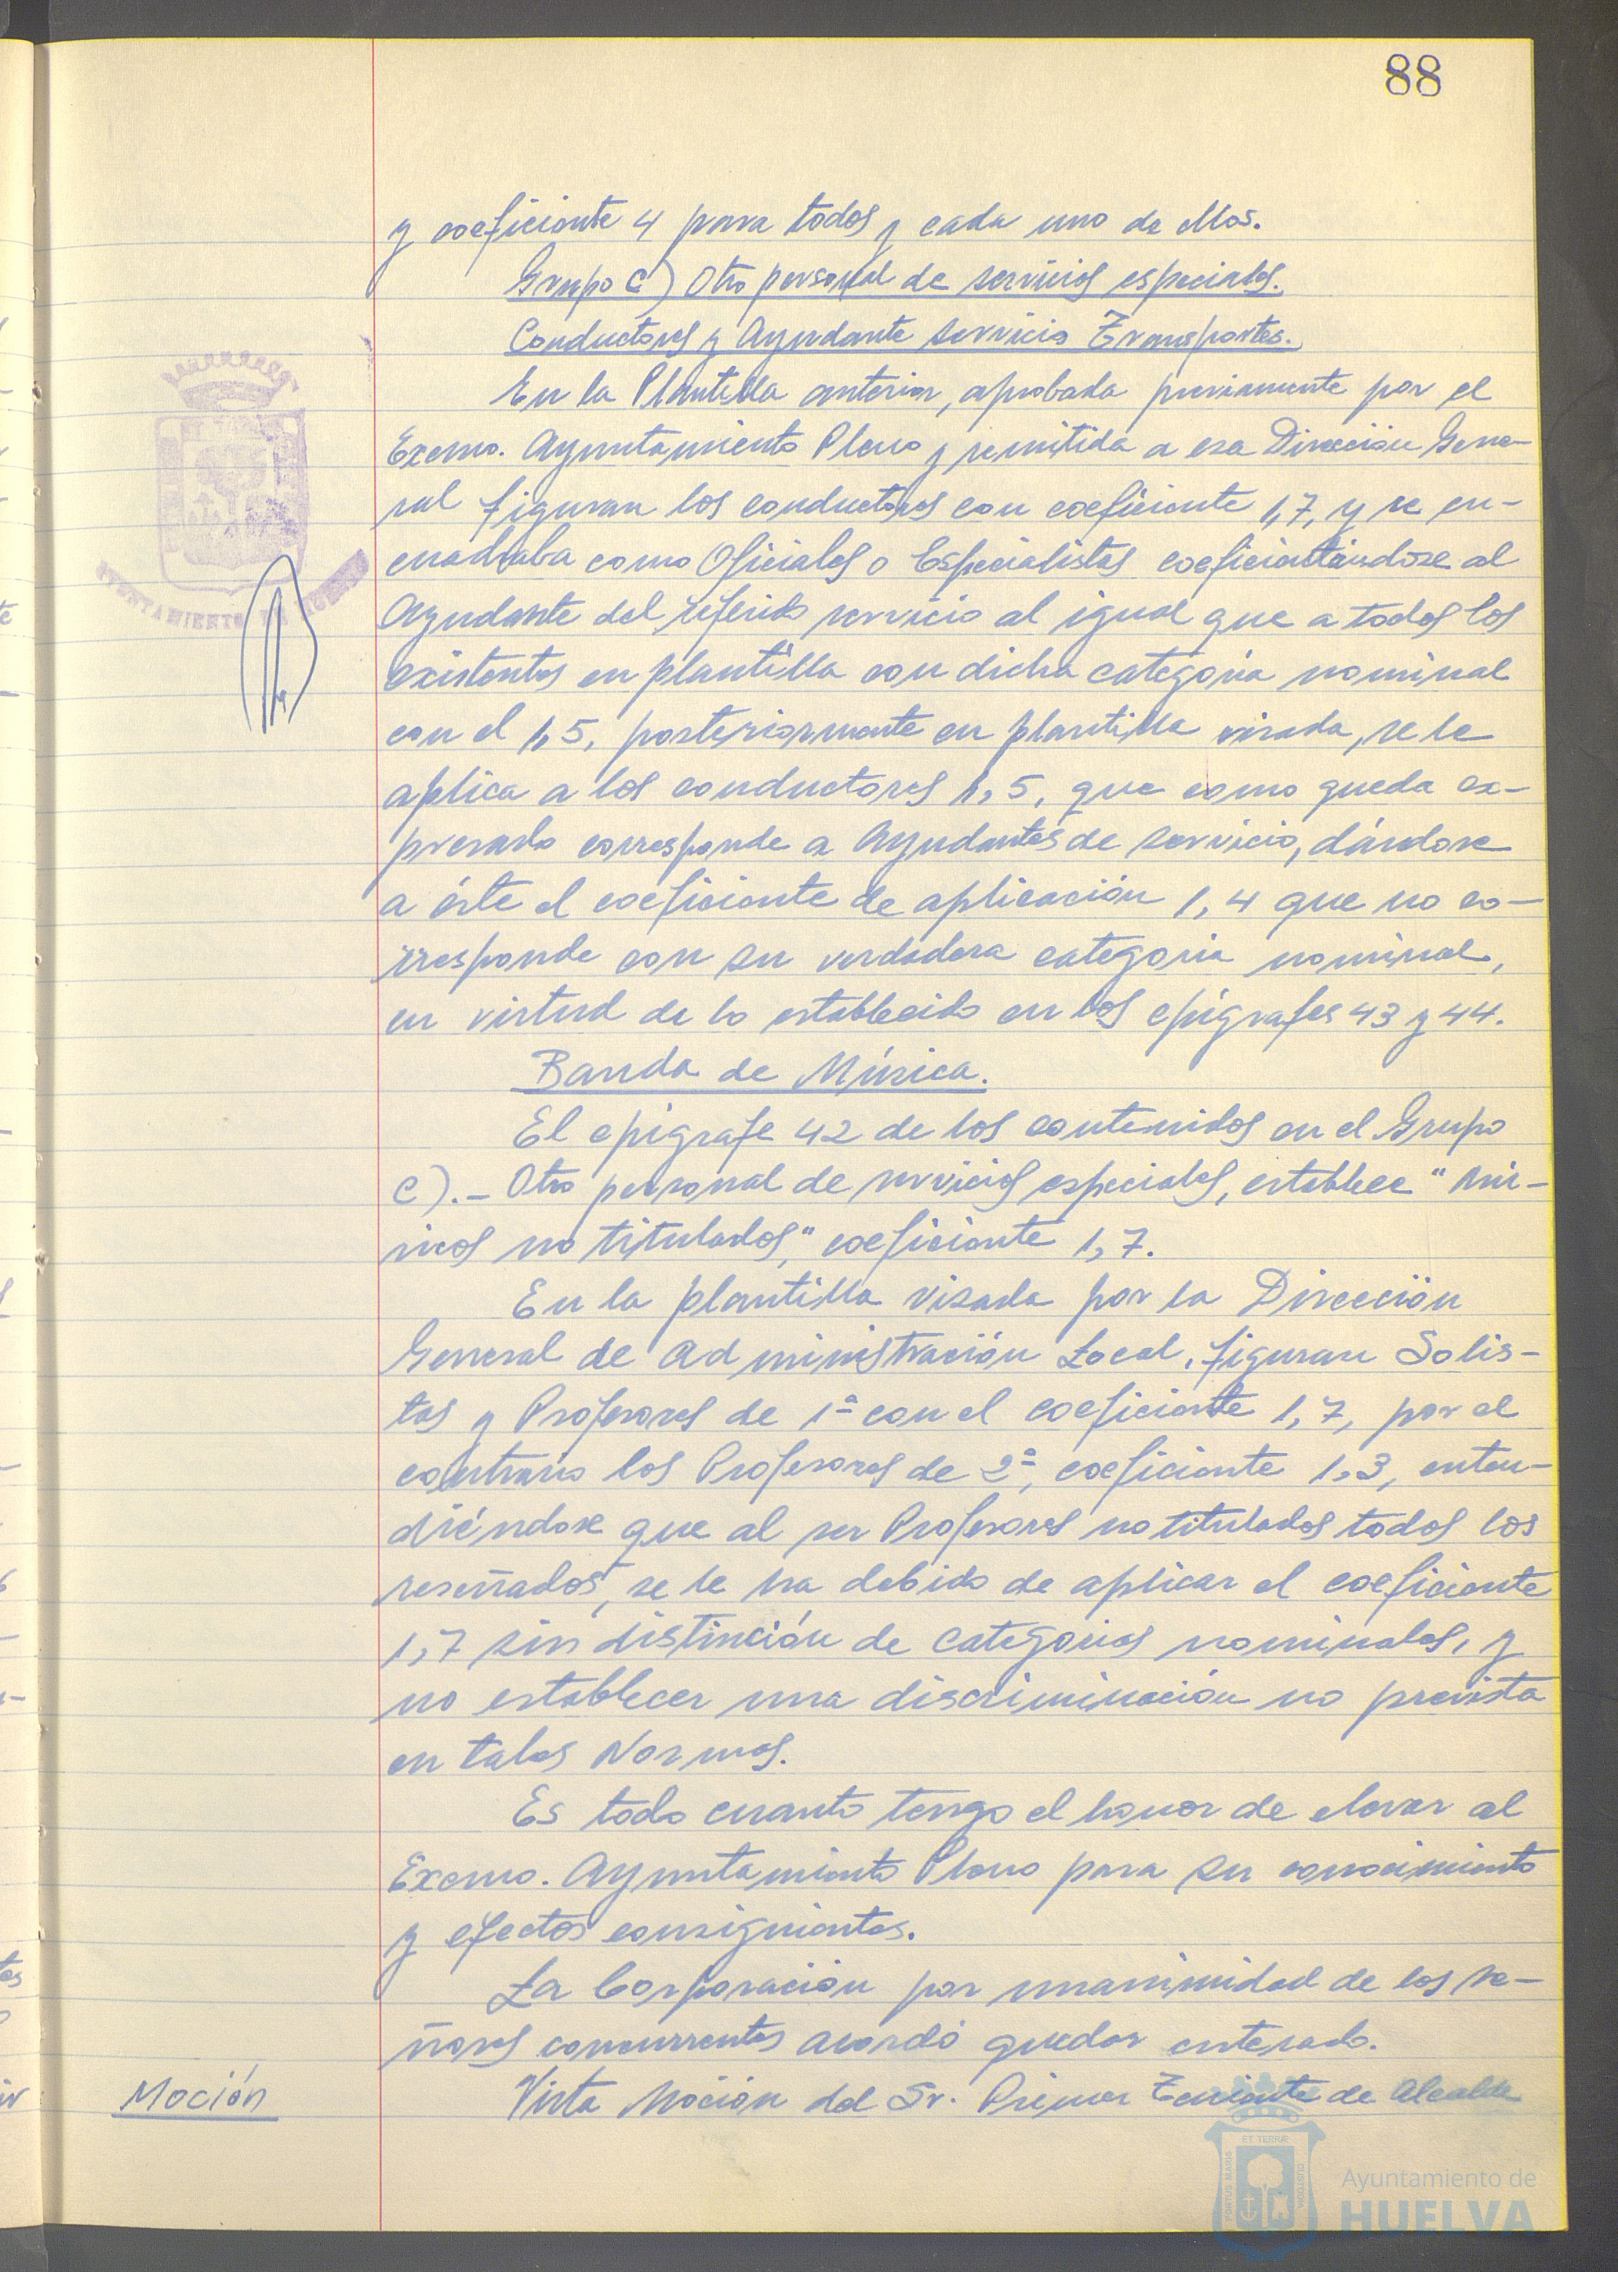 88
y coeficiente 4 para todos y cada uno de ellos.
Grupo C) Otro personal de servicios especiales.
Conductores y Ayudante servicio Transportes.
En la Plantilla anterior, aprobada previamente por el
Excmo. Ayuntamiento Pleno y remitida a esa Dirección Gene-
ral figuran los conductores con coeficiente 1,7, y se en-
cuadraba como Oficiales o Especialistas coeficientándose al
Ayudante del referido servicio al igual que a todos los
existentes en plantilla con dicha categoria nominal
con el 1,5, posteriormente en plantilla visada, se le
aplica a los conductores 1,5, que como queda ex-
presado corresponde a Ayudantes de servicio, dándose
a éste el coeficiente de aplicación 1,4 que no co-
rresponde con su verdadera categoria nominal,
en virtud de lo establecido en los epígrafes 43 y 44.
Banda de Música.
El epígrafe 42 de los contenidos en el Grupo
C).- Otro personal de servicios especiales, establece "Mú-
sicos no titulados," coeficiente 1,7.
En la plantilla visada por la Dirección
General de Administración Local, figuran Solis-
tas y Profesores de 1ª con el coeficiente 1,7, por el
contrario los Profesores de 2ª, coeficiente 1,3, enten-
diéndose que al ser Profesores no titulados todos los
reseñados, se le ha debido de aplicar el coeficiente
1,7 sin distinción de categorias nominales, y
no establecer una discriminación no prevista
en tales Normas.
Es todo cuanto tengo el honor de elevar al
Excmo. Ayuntamiento Pleno para su conocimiento
y efectos consiguientes.
La Corporación por unanimidad de los se-
ñores concurrentes acordó quedar enterado.
Moción
Vista Moción del Sr. Primer Teniente de Alcalde
AYUNTAMIENTO DE HUELVA
PORTUS MARIS
ET TERRÆ
CUSTODIA
Ayuntamiento de
HUELVA